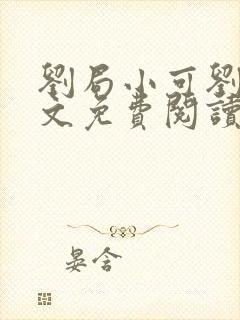 劉局小可劉
文免費閱讀
晏含